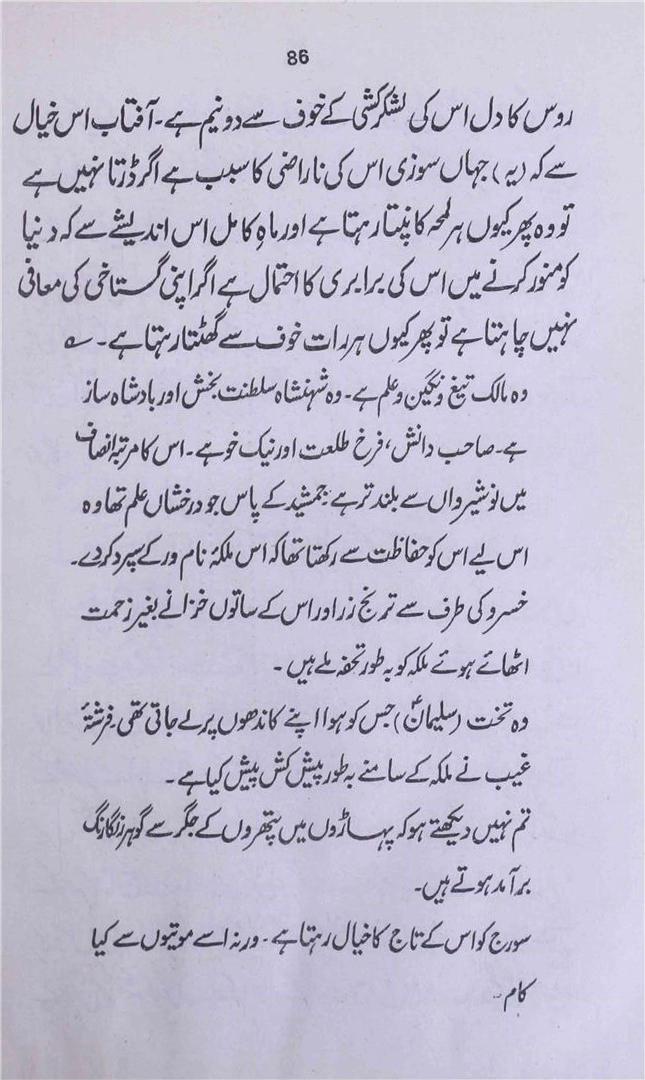 86
روس کا دل اس کی لشکر کشی کے خوف سے دو نیم ہے۔ آفتاب اس خیال
سے کہ (یہ) جہاں سوزی اس کی ناراضی کا سبب ہے اگر ڈرتا نہیں ہے
تو وہ پھر کیوں ہر لمحہ کانپتا رہتا ہے اور ماہِ کامل اس اندیشے سے کہ دنیا
کو منور کرنے میں اس کی برابری کا احتمال ہے اگر اپنی گستاخی کی معافی
نہیں چاہتا ہے تو پھر کیوں ہر رات خوف سے گھٹتا رہتا ہے۔ ؎
وہ مالک تیغ و نگین و علم ہے۔ وہ شہنشاہ سلطنت بخش اور بادشاہ ساز
ہے۔ صاحب دانش، فرخ طلعت اور نیک خو ہے۔ اس کا مرتبہ انصاف
میں نوشیرواں سے بلند تر ہے۔ جمشید کے پاس جو درخشاں علم تھا وہ
اس لیے اس کو حفاظت سے رکھتا تھا کہ اس ملکۂ نام ور کے سپرد کر دے۔
خسرو کی طرف سے ترنج زر اور اس کے ساتوں خزانے بغیر زحمت
اٹھائے ہوئے ملکہ کو بہ طور تحفہ ملے ہیں۔
وہ تخت (سلیمانؑ) جس کو ہوا اپنے کاندھوں پر لے جاتی تھی۔ فرشتۂ
غیب نے ملکہ کے سامنے بہ طور پیش کش پیش کیا ہے۔
تم نہیں دیکھتے ہو کہ پہاڑوں میں پتھروں کے جگر سے گوہر رنگا رنگ
برآمد ہوتے ہیں۔
سورج کو اس کے تاج کا خیال رہتا ہے۔ ورنہ اسے موتیوں سے کیا
کام۔